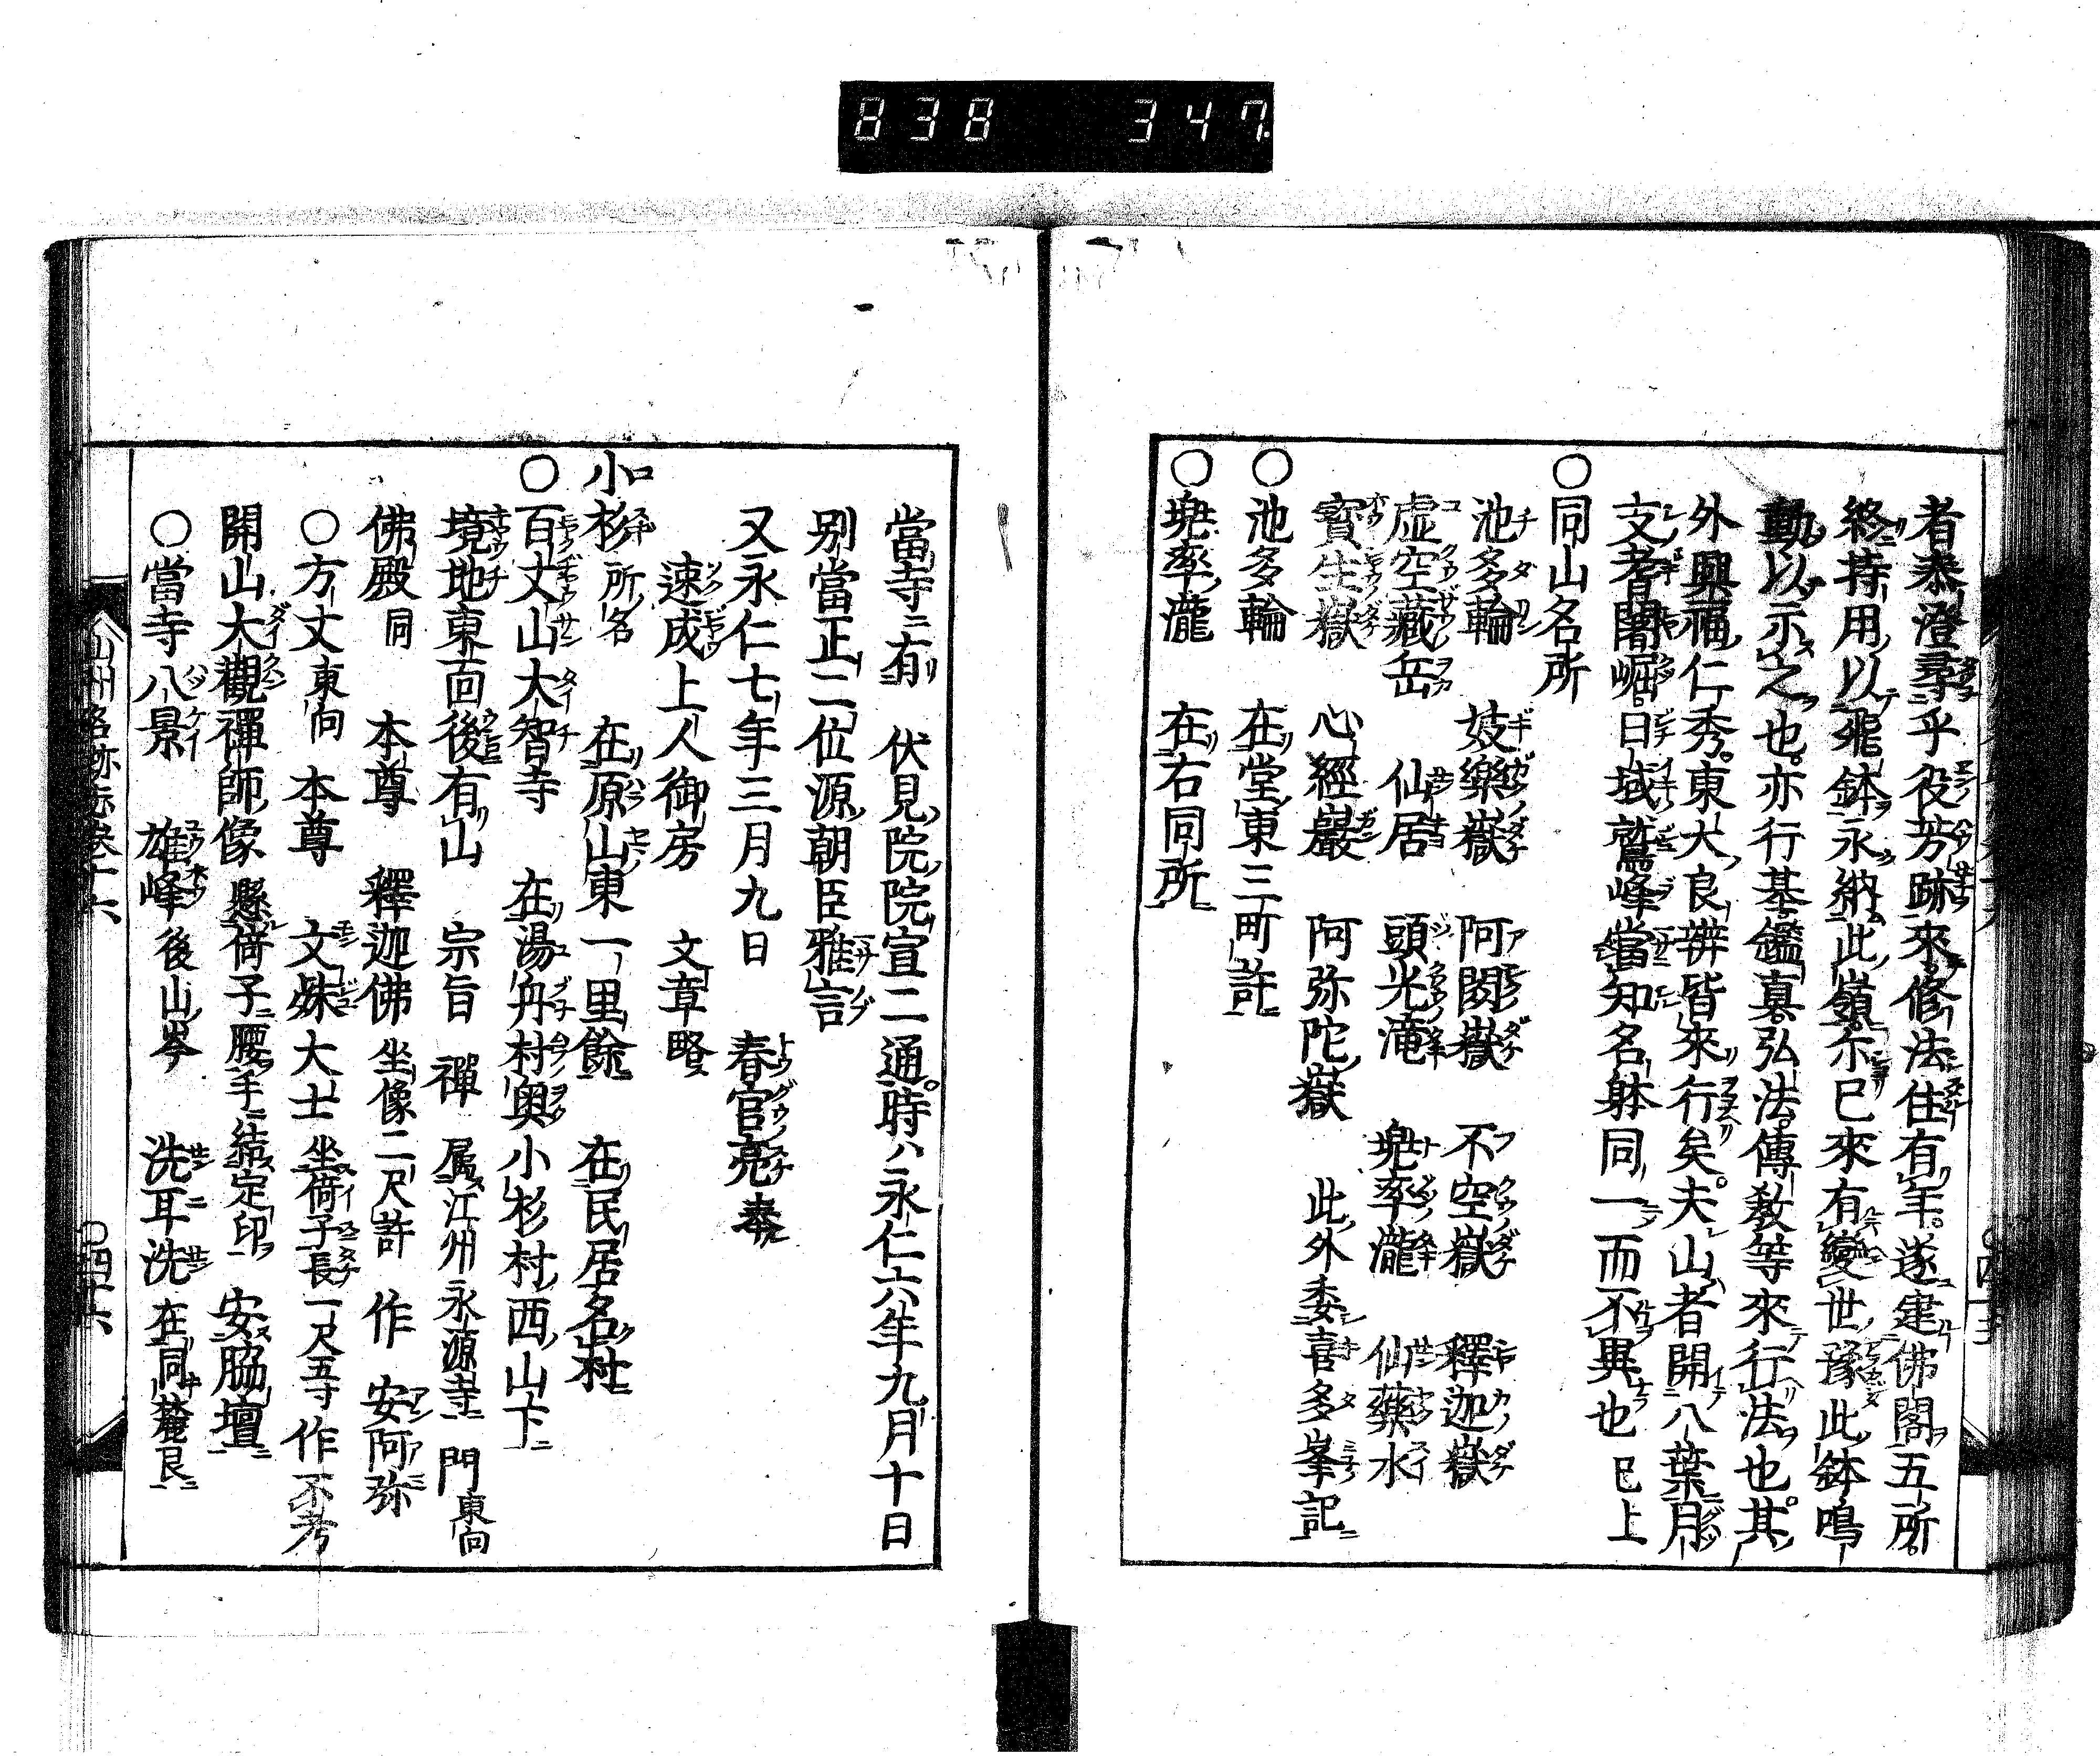 838 347
者泰澄尋乎役芳跡來修法住有年。遂建佛閣五所。
終持用以飛鉢永納此嶺尒已來有變世豫此鉢鳴
動以示之也。亦行基鑑真弘法傳教等來行法也。其
外興福仁秀。東大良辨皆來行矣。夫山者開八葉月
支耆闍崛。日域鷲峰當知名躰同一而不異也 已上
〇同山名所
池多輪 妓樂嶽 阿閦嶽 不空嶽 釋迦嶽
虛空藏岳 仙居 頭光滝 兠率瀧 仙藥水
寶生嶽 心經巖 阿弥陀嶽 此外委喜多峯記
〇池多輪 在堂東三町許
〇兠率瀧 在右同所
當寺ニ有 伏見院院宣二通。時ハ永仁六年九月十日
別當正二位源朝臣雅言
又永仁七年三月九日 春宮亮奉
速成上人御房 文章略
小杉 所名 在原山東一里餘 在民居名村
〇百丈山大智寺 在湯舟村奥小杉村西山下
境地東面後有山 宗旨 禪 属江州永源寺 門東向
佛殿同 本尊 釋迦佛 坐像二尺許 作 安阿弥
〇方丈東向 本尊 文殊大士 坐倚子長一尺五寸 作不考
開山大觀禪師像 懸倚子腰手結定印 安脇壇
〇當寺八景 雄峰 後山岑 洗耳洗 在同麓艮
山州名跡志卷十六 〇四十六